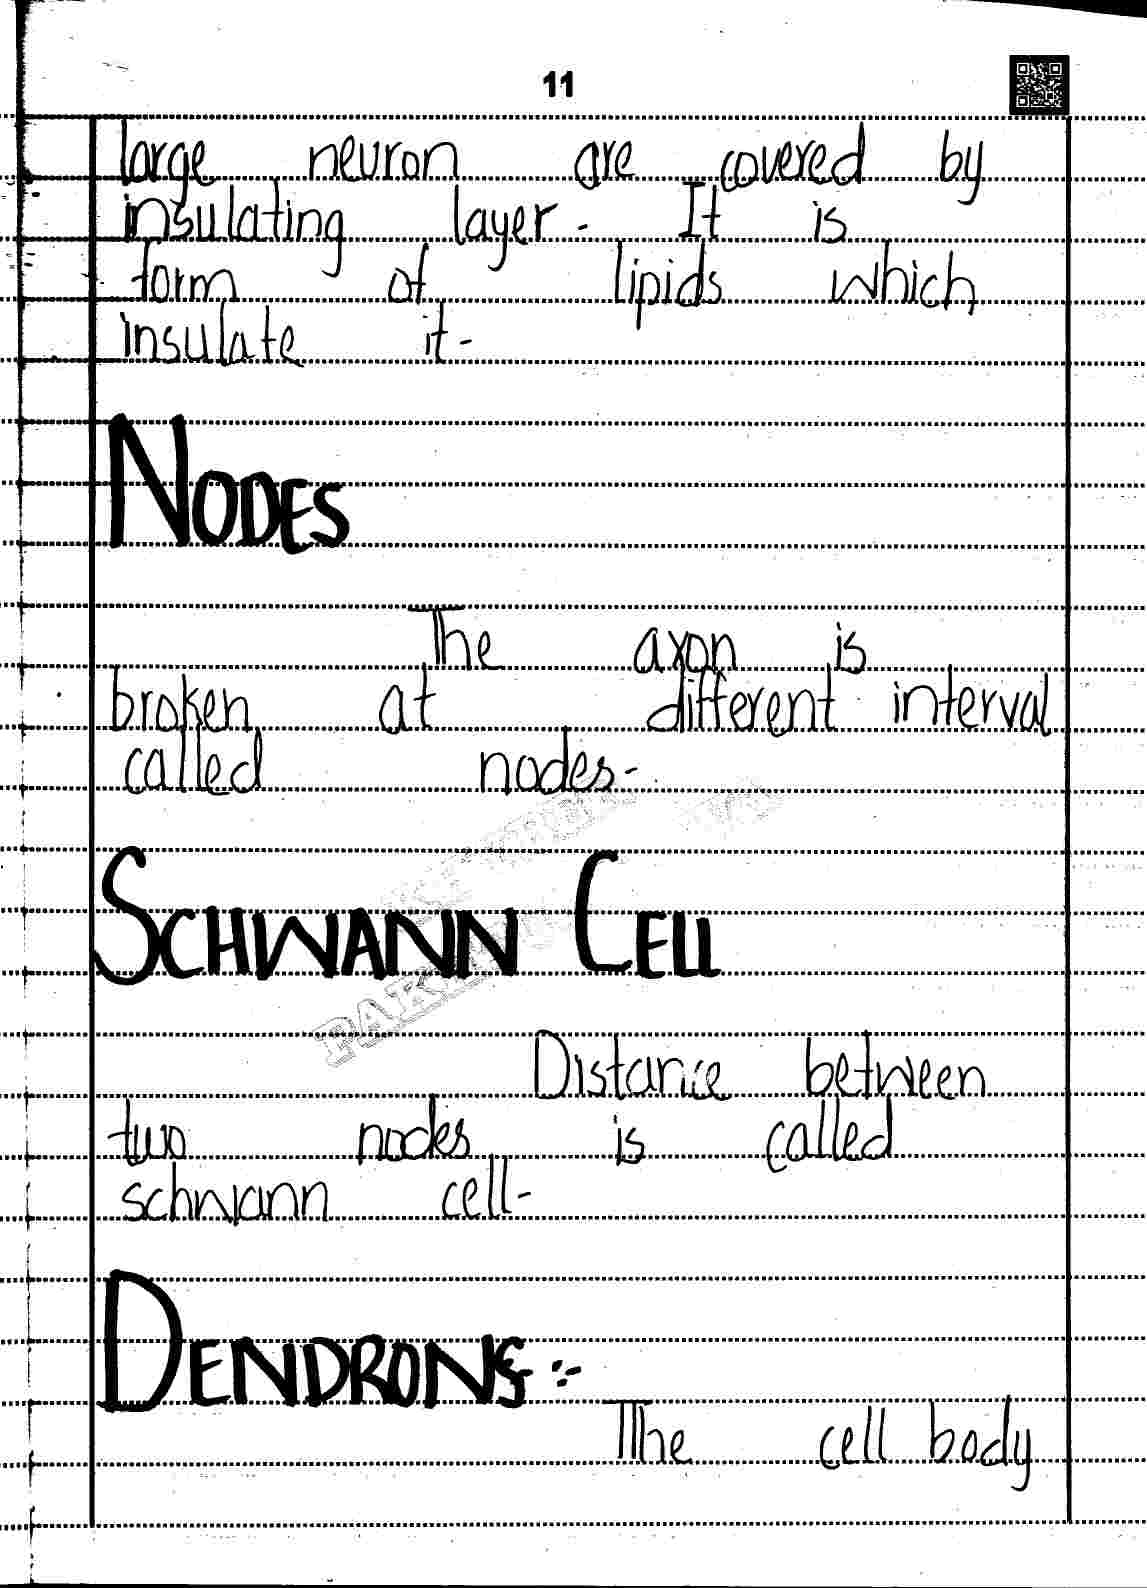 11
large neuron are covered by
insulating layer. It is
form of lipids which
insulate it.
NODES
The axon is
broken at different interval
called nodes.
SCHWANN CELL
Distance between
two nodes is called
schwann cell.
DENDRONS :-
The cell body